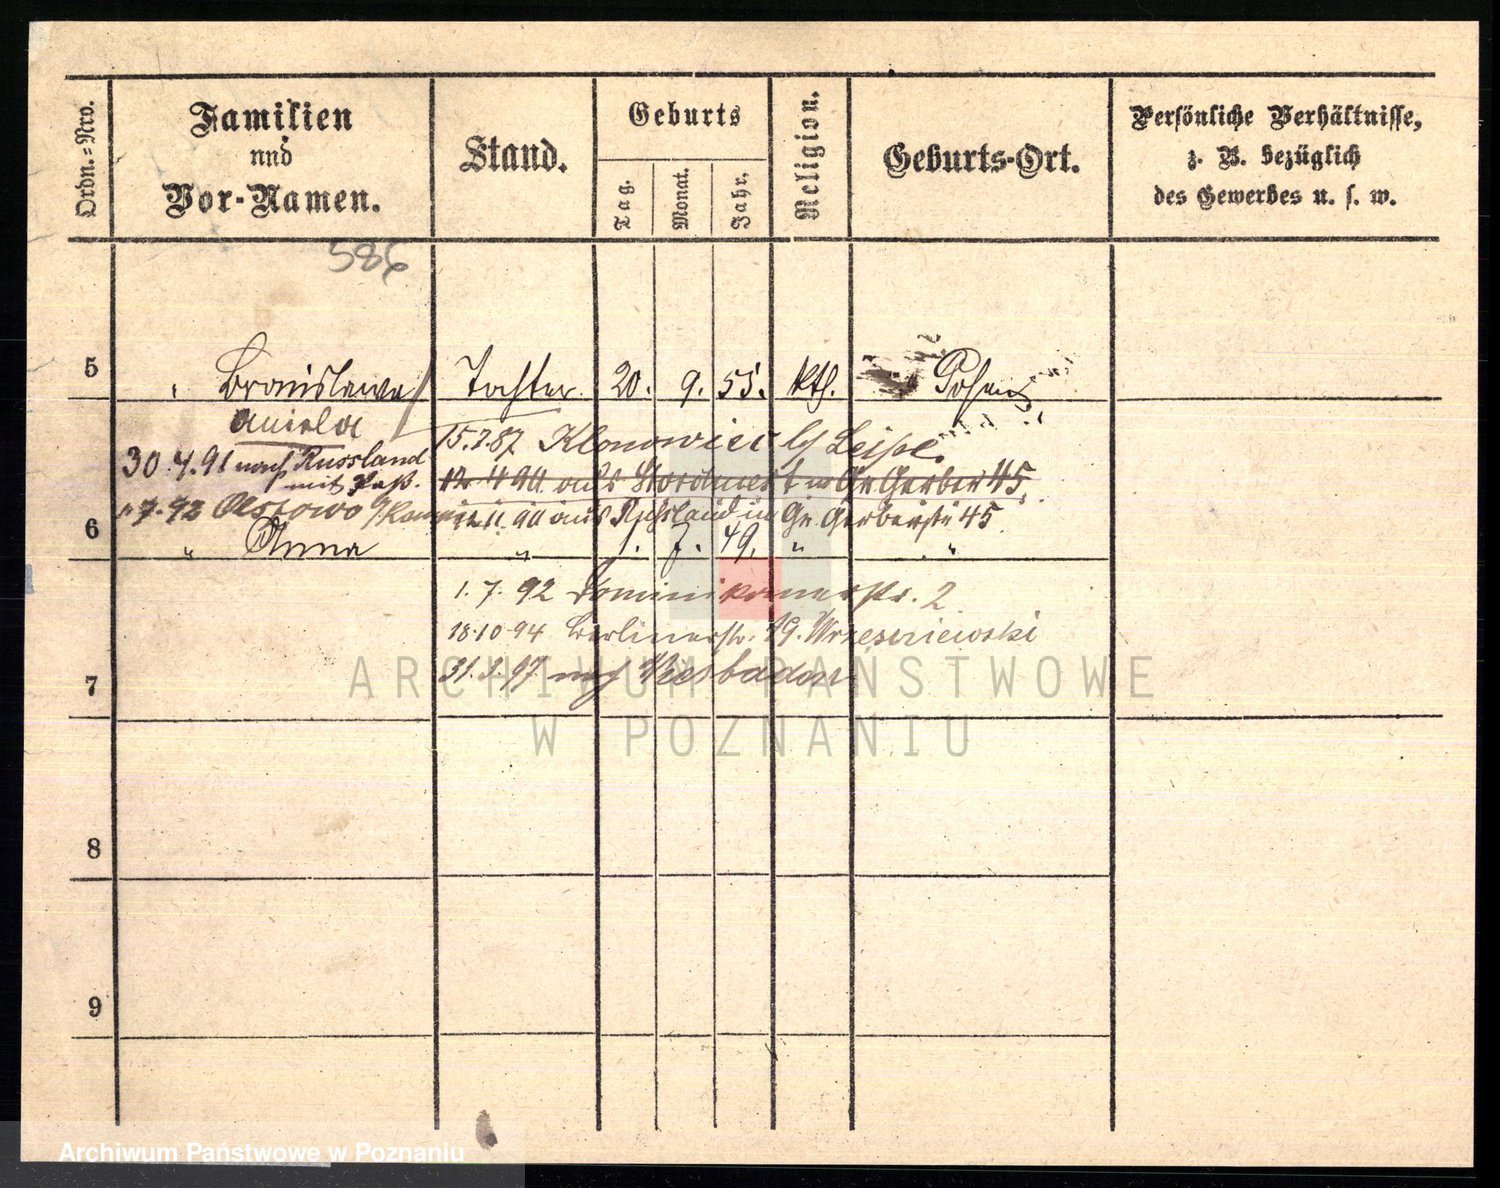 Ordn.=Nro.
Familien
und
Vor-Namen.
Stand.
Geburts
Tag.
Monat.
Jahr.
Religion.
Geburts-Ort.
Persönliche Verhältnisse,
z. B. bezüglich
des Gewerbes u. s. w.
586
5
Bronislawa Tochter. 20. 9. 55. kth. Posen
Aniela
15.7.87 Klonowiec b/ Leipe.
30.4.91 nach Russland
mit Paß.
12 4 90 aus Gr Gerber 45.
7.92 Ostrowo
11.90 aus Russland in Gr. Gerberstr 45
6
" Anna " 1. 7. 49. " "
1. 7. 92 Dominikanerstr. 2
18.10.94 Berlinerstr. 19. Wrzesniewski
7
31.3.97 nach Wiesbaden
ARCHIWUM PAŃSTWOWE
W POZNANIU
8
9
Archiwum Państwowe w Poznaniu